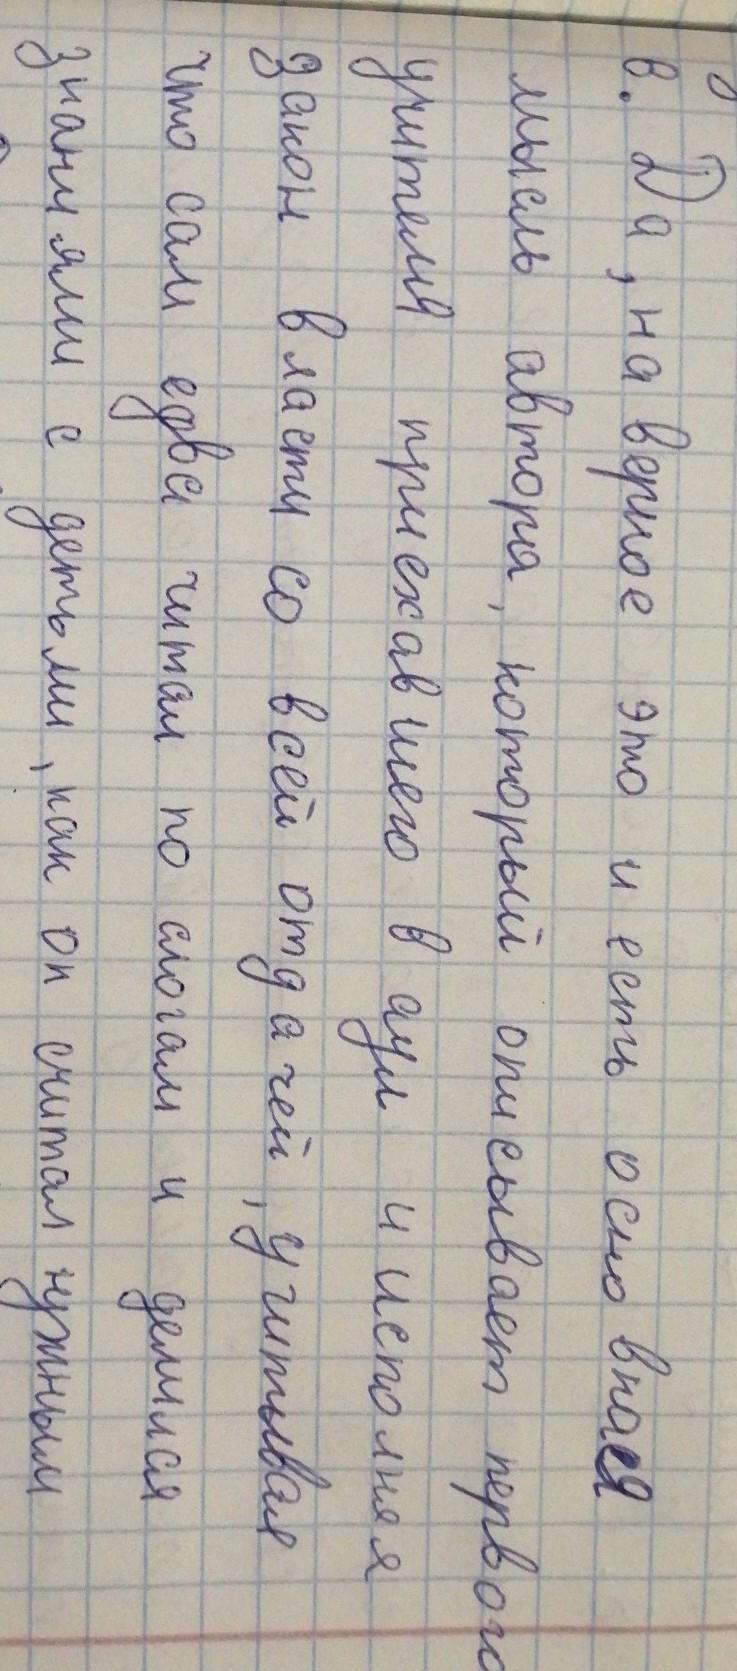 в. Да, наверное это и есть основная
мысль автора, который описывает первого
учителя приехавшего в аул и исполняя
закон власти со всей отдачей, учитывая
что сам едва читал по слогам и делился
знаниями с детьми, как он считал нужным